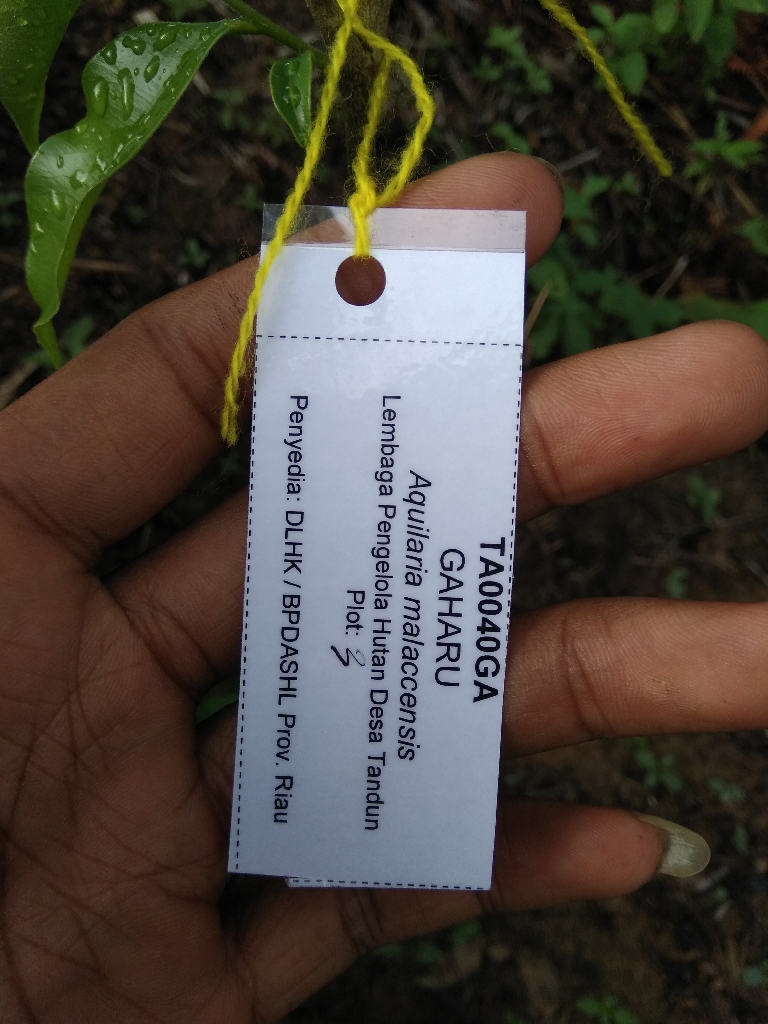 TA0040GA
GAHARU
Aquilaria malaccensis
Lembaga Pengelola Hutan Desa Tandun
Plot: 3
Penyedia: DLHK / BPDASHL Prov. Riau